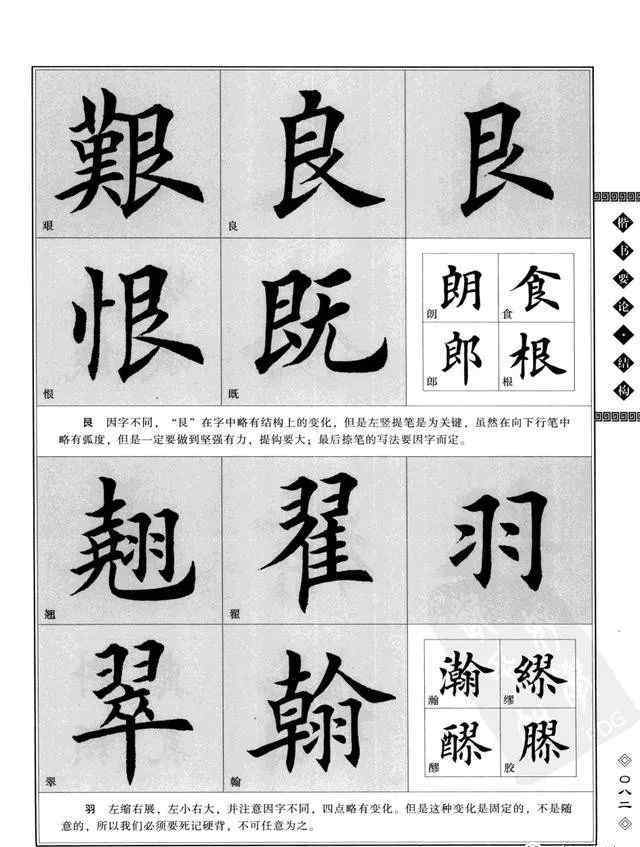 艰
良
艮
艱
良
恨
既
朗
食
郎
根
恨
既
朗
食
郎
根
艮 因字不同，“艮”在字中略有结构上的变化，但是左竖提笔是为关键，虽然在向下行笔中
略有弧度，但是一定要做到坚强有力，提钩要大；最后捺笔的写法要因字而定。
翘
翟
羽
翘
翟
翠
翰
瀚
缪
醪
膠
翠
翰
瀚
缪
醪
胶
羽 左缩右展、左小右大，并注意因字不同，四点略有变化。但是这种变化是固定的，不是随
意的，所以我们必须要死记硬背，不可任意为之。
楷书要论·结构
〇八二